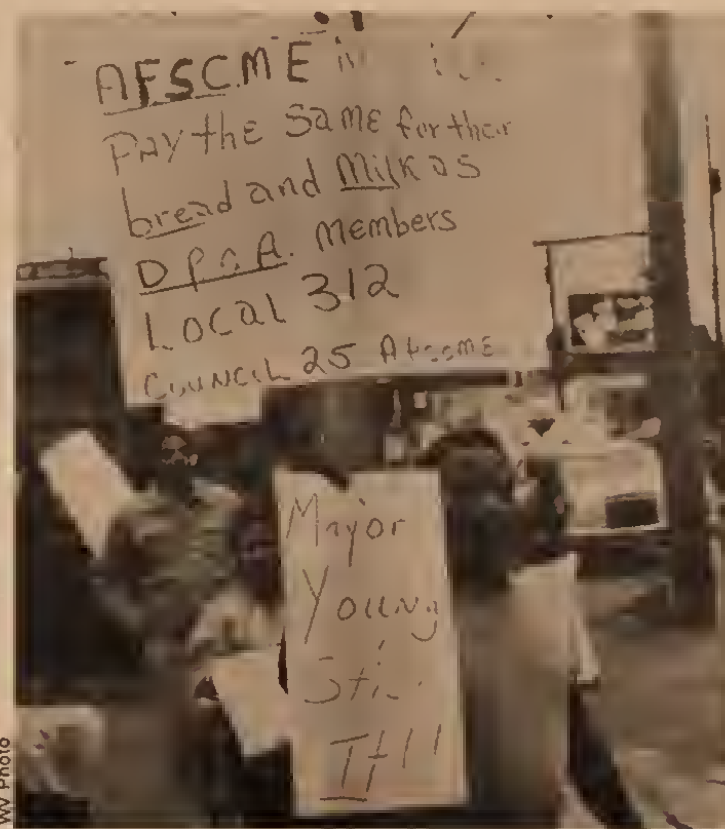 AFSCME
Pay the Same for their
bread and Milk as
D.P.O.A. Members
Local 312
Council 25 Afscme
Mayor
Young
It!!
WV Photo